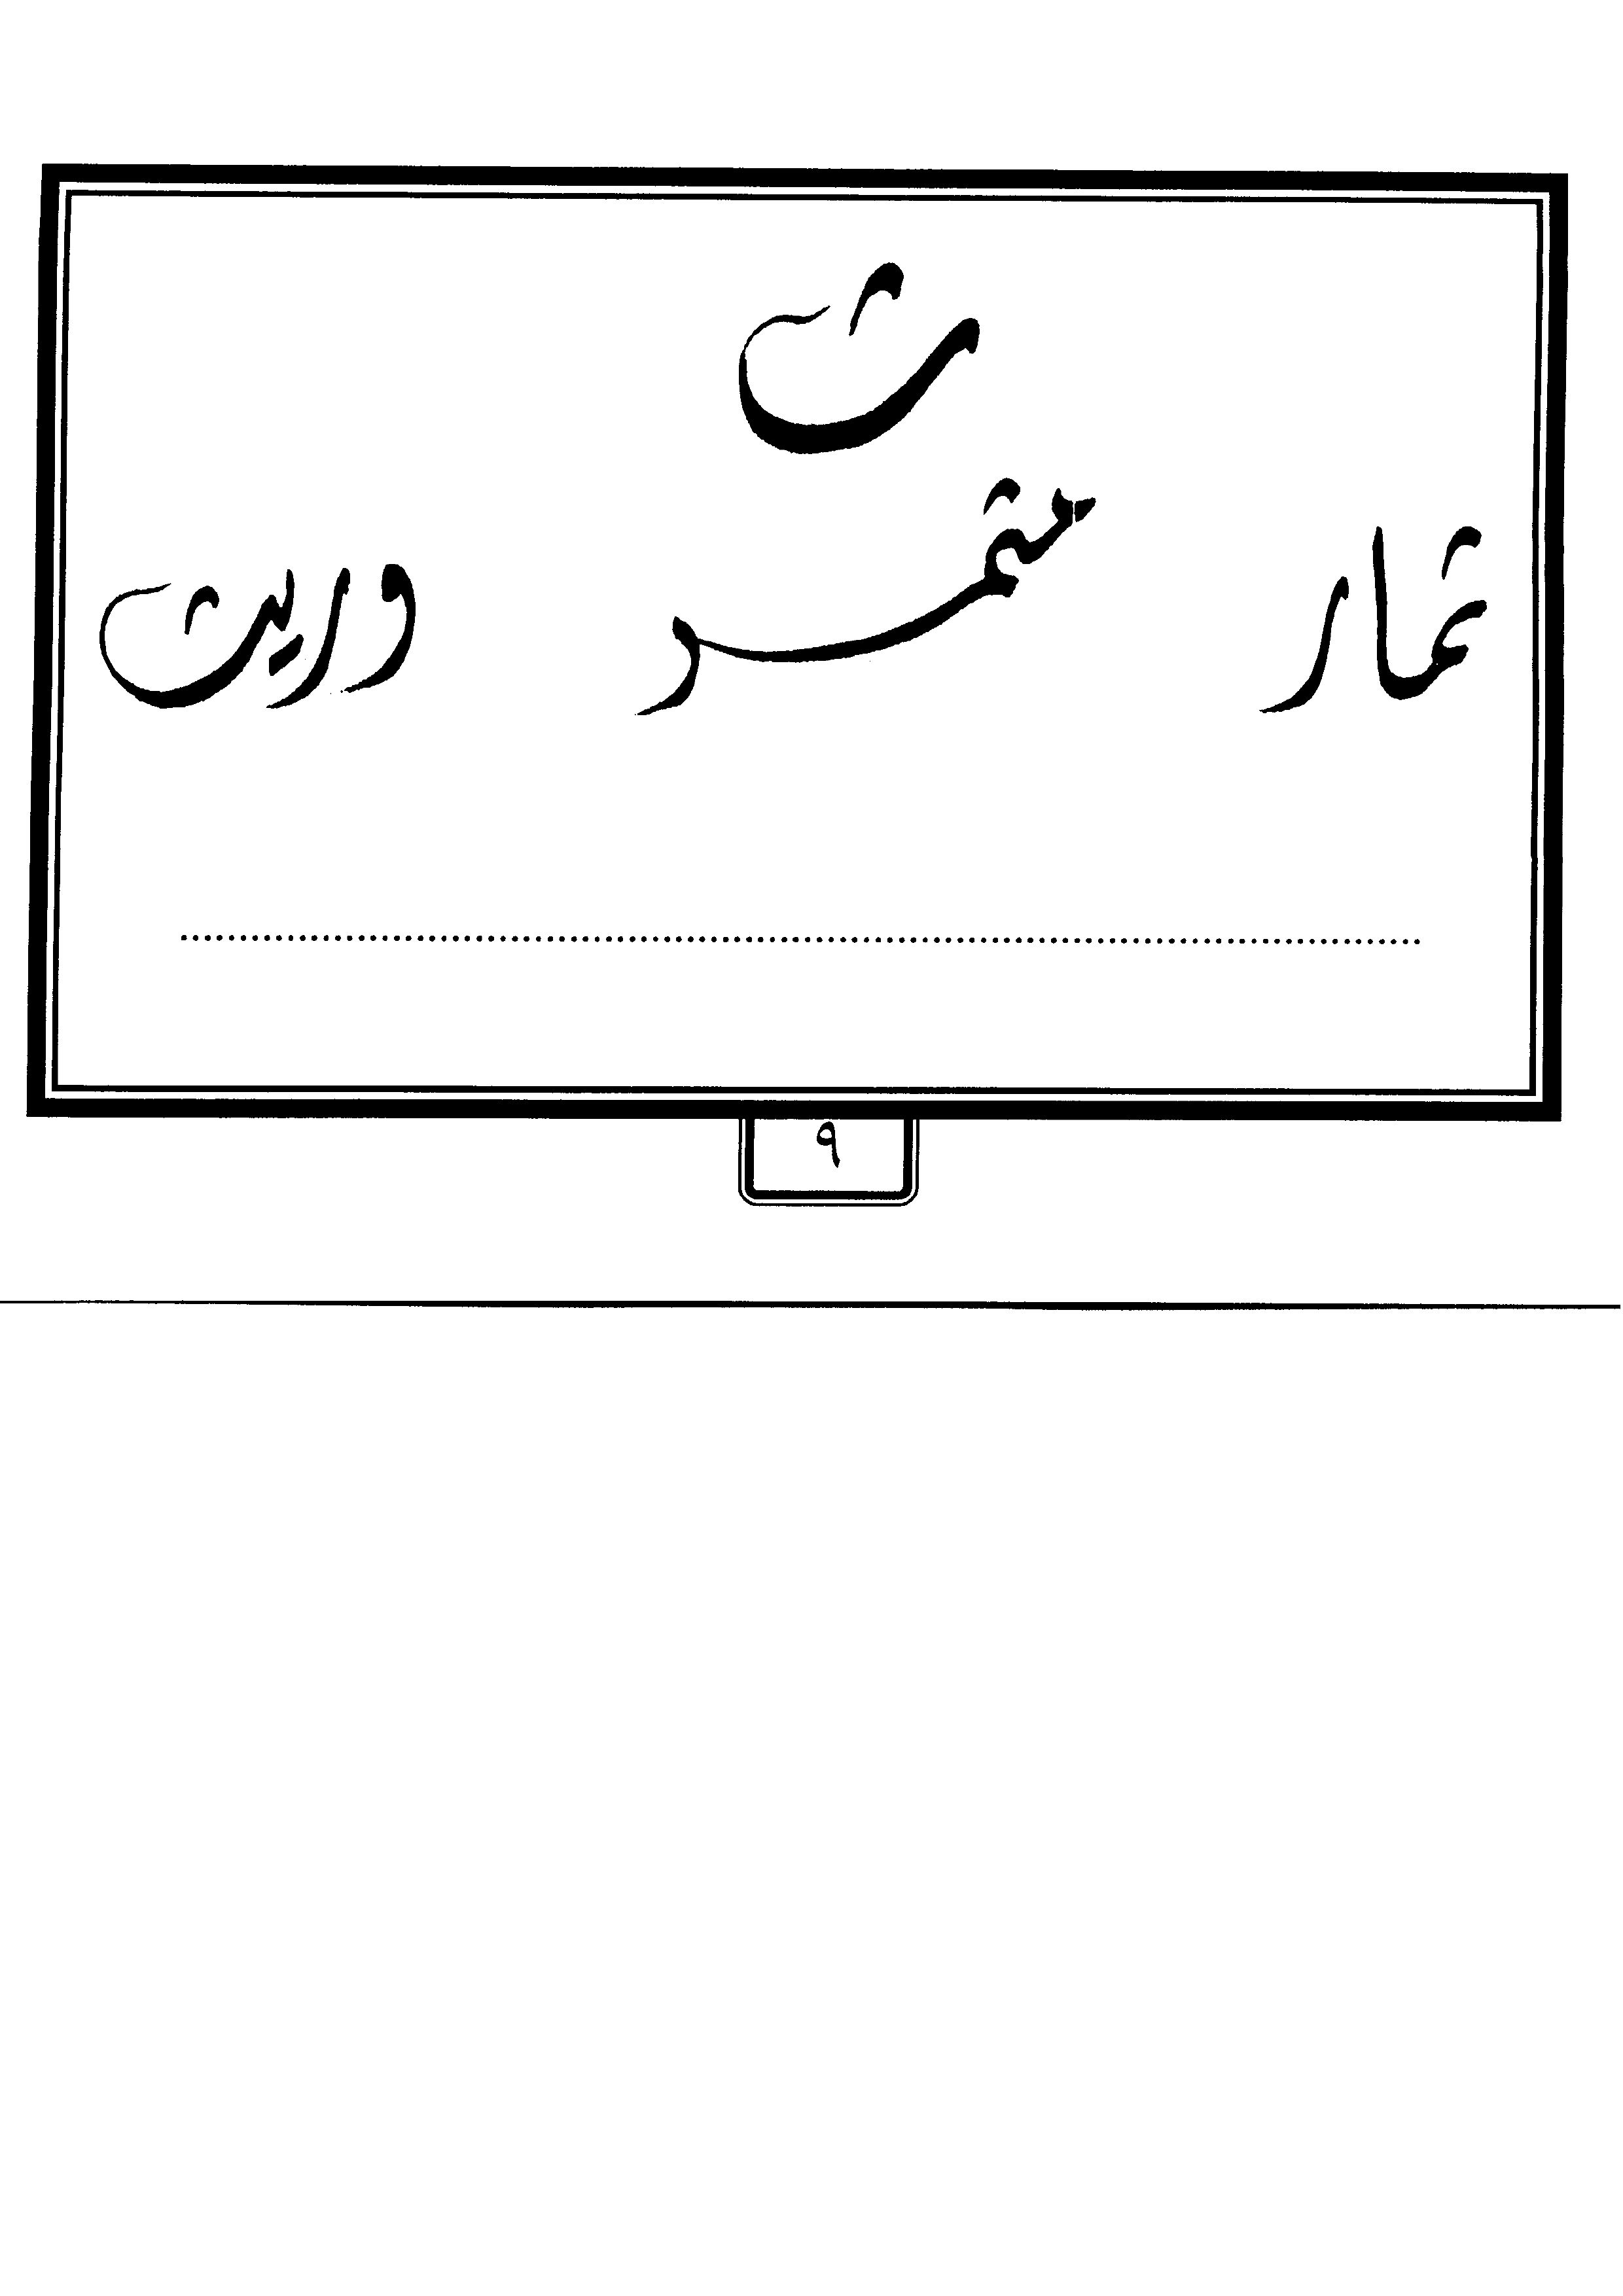 ث
ثمار مثمر وريث
٩